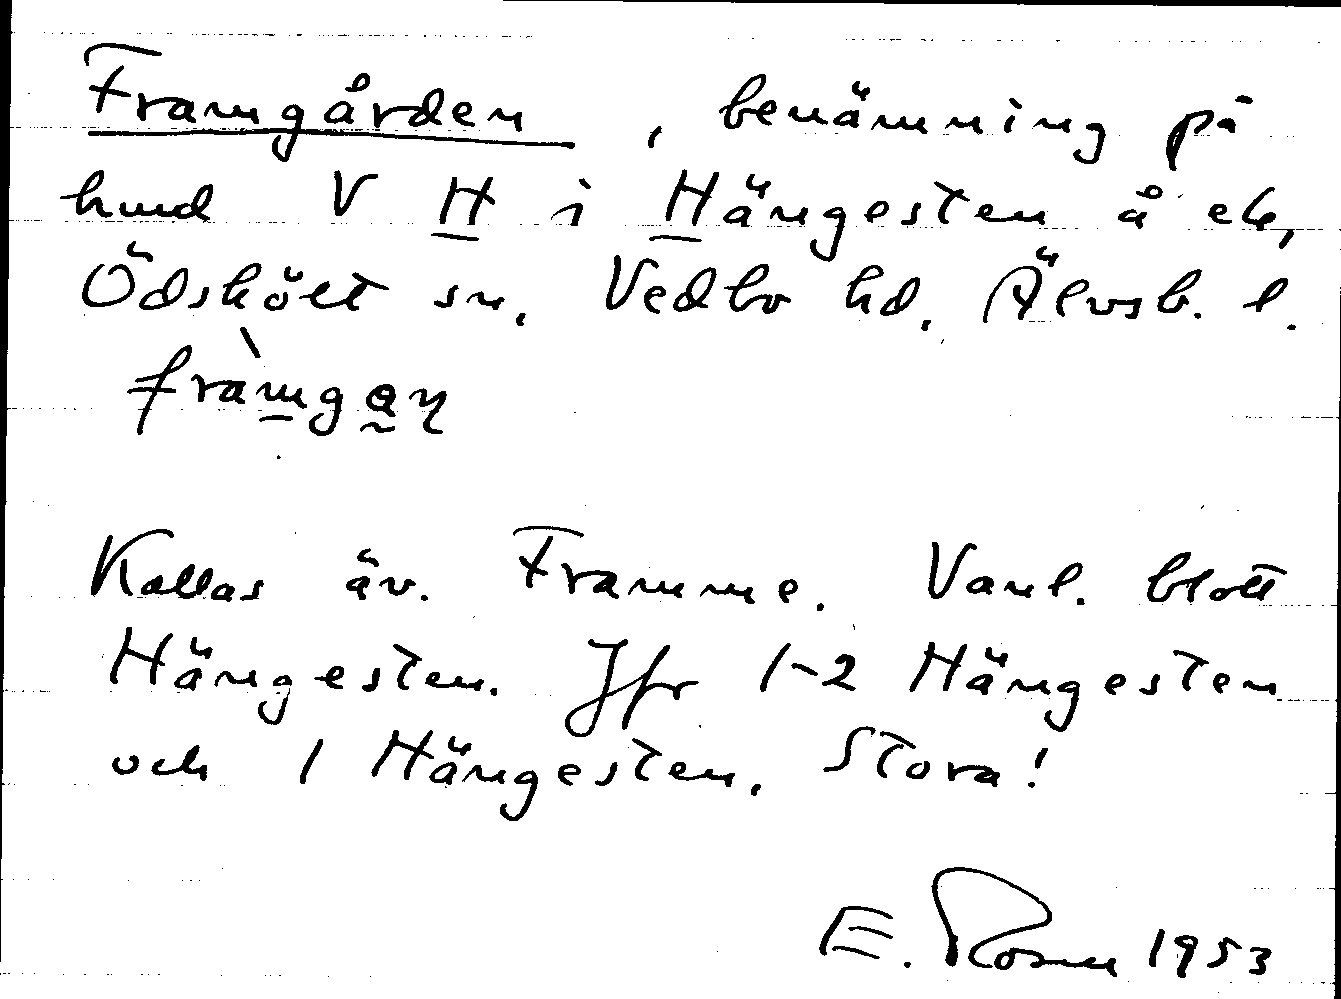 Framgården, benämning på
hmd V H i Hängesten å ek,
Ödskölt sn. Vedbo hd. Älvsb. l.
fràmgaɳ
Kallas äv. Framme. Vanl. blott
Hängesten. Jfr 1-2 Hängesten
och 1 Hängesten, Stora!
E. Rosen 1953